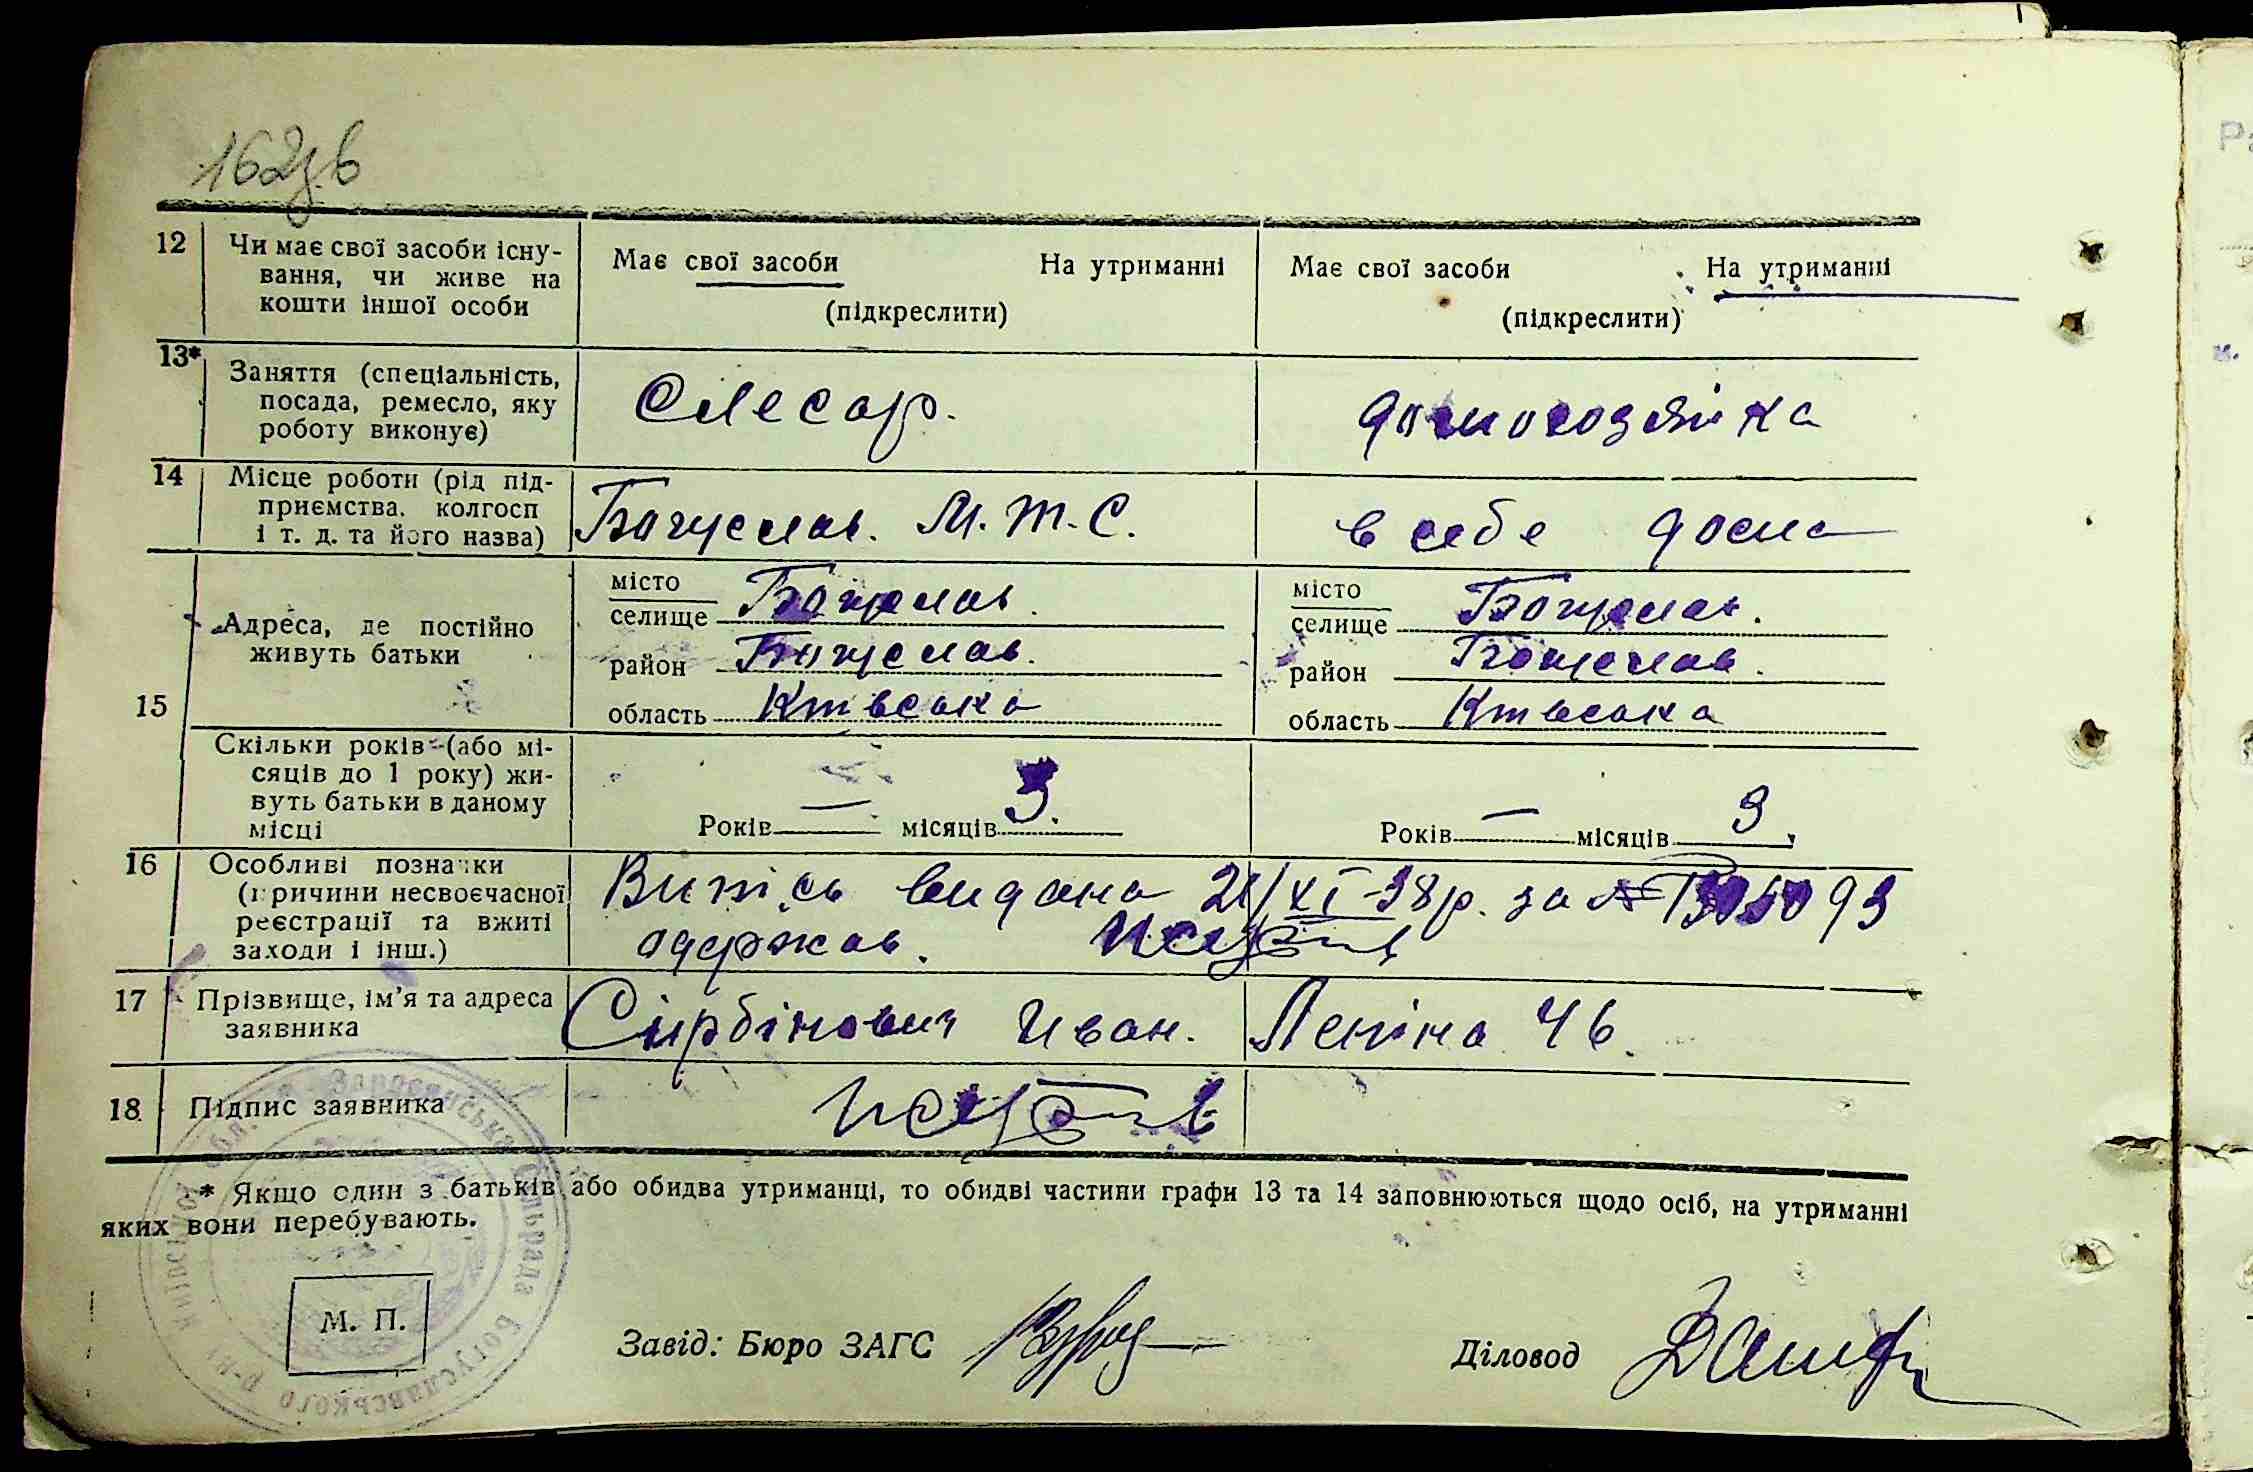 162зв
12 Чи має свої засоби існу-
вання, чи живе на
кошти іншої особи
Має свої засоби На утриманні
(підкреслити)
Має свої засоби На утриманні
(підкреслити)
13* Заняття (спеціальність,
посада, ремесло, яку
роботу виконує)
Слесар.
домохозяйка
14 Місце роботи (рід під-
приємства, колгосп
і т. д. та його назва)
Богуслав. М.Т.С.
в себе дома
15 Адреса, де постійно
живуть батьки
місто
селище Богуслав.
район Богуслав.
область Київська
місто
селище Богуслав.
район Богуслав.
область Київська
Скільки років (або мі-
сяців до 1 року) жи-
вуть батьки в даному
місці
Років — місяців 3.
Років — місяців 3.
16 Особливі познаки
(причини несвоєчасної
реєстрації та вжиті
заходи і інш.)
Випісь видана XI-38р. за №
одержав.
17 Прізвище, ім'я та адреса
заявника
Сірбінович Иван. Леніна 46.
18 Підпис заявника
* Якщо один з батьків або обидва утриманці, то обидві частини графи 13 та 14 заповнюються щодо осіб, на утриманні
яких вони перебувають.
М. П.
Завід: Бюро ЗАГС
Діловод
Зарослянська сільрада Богуславського р-ну Київської обл.